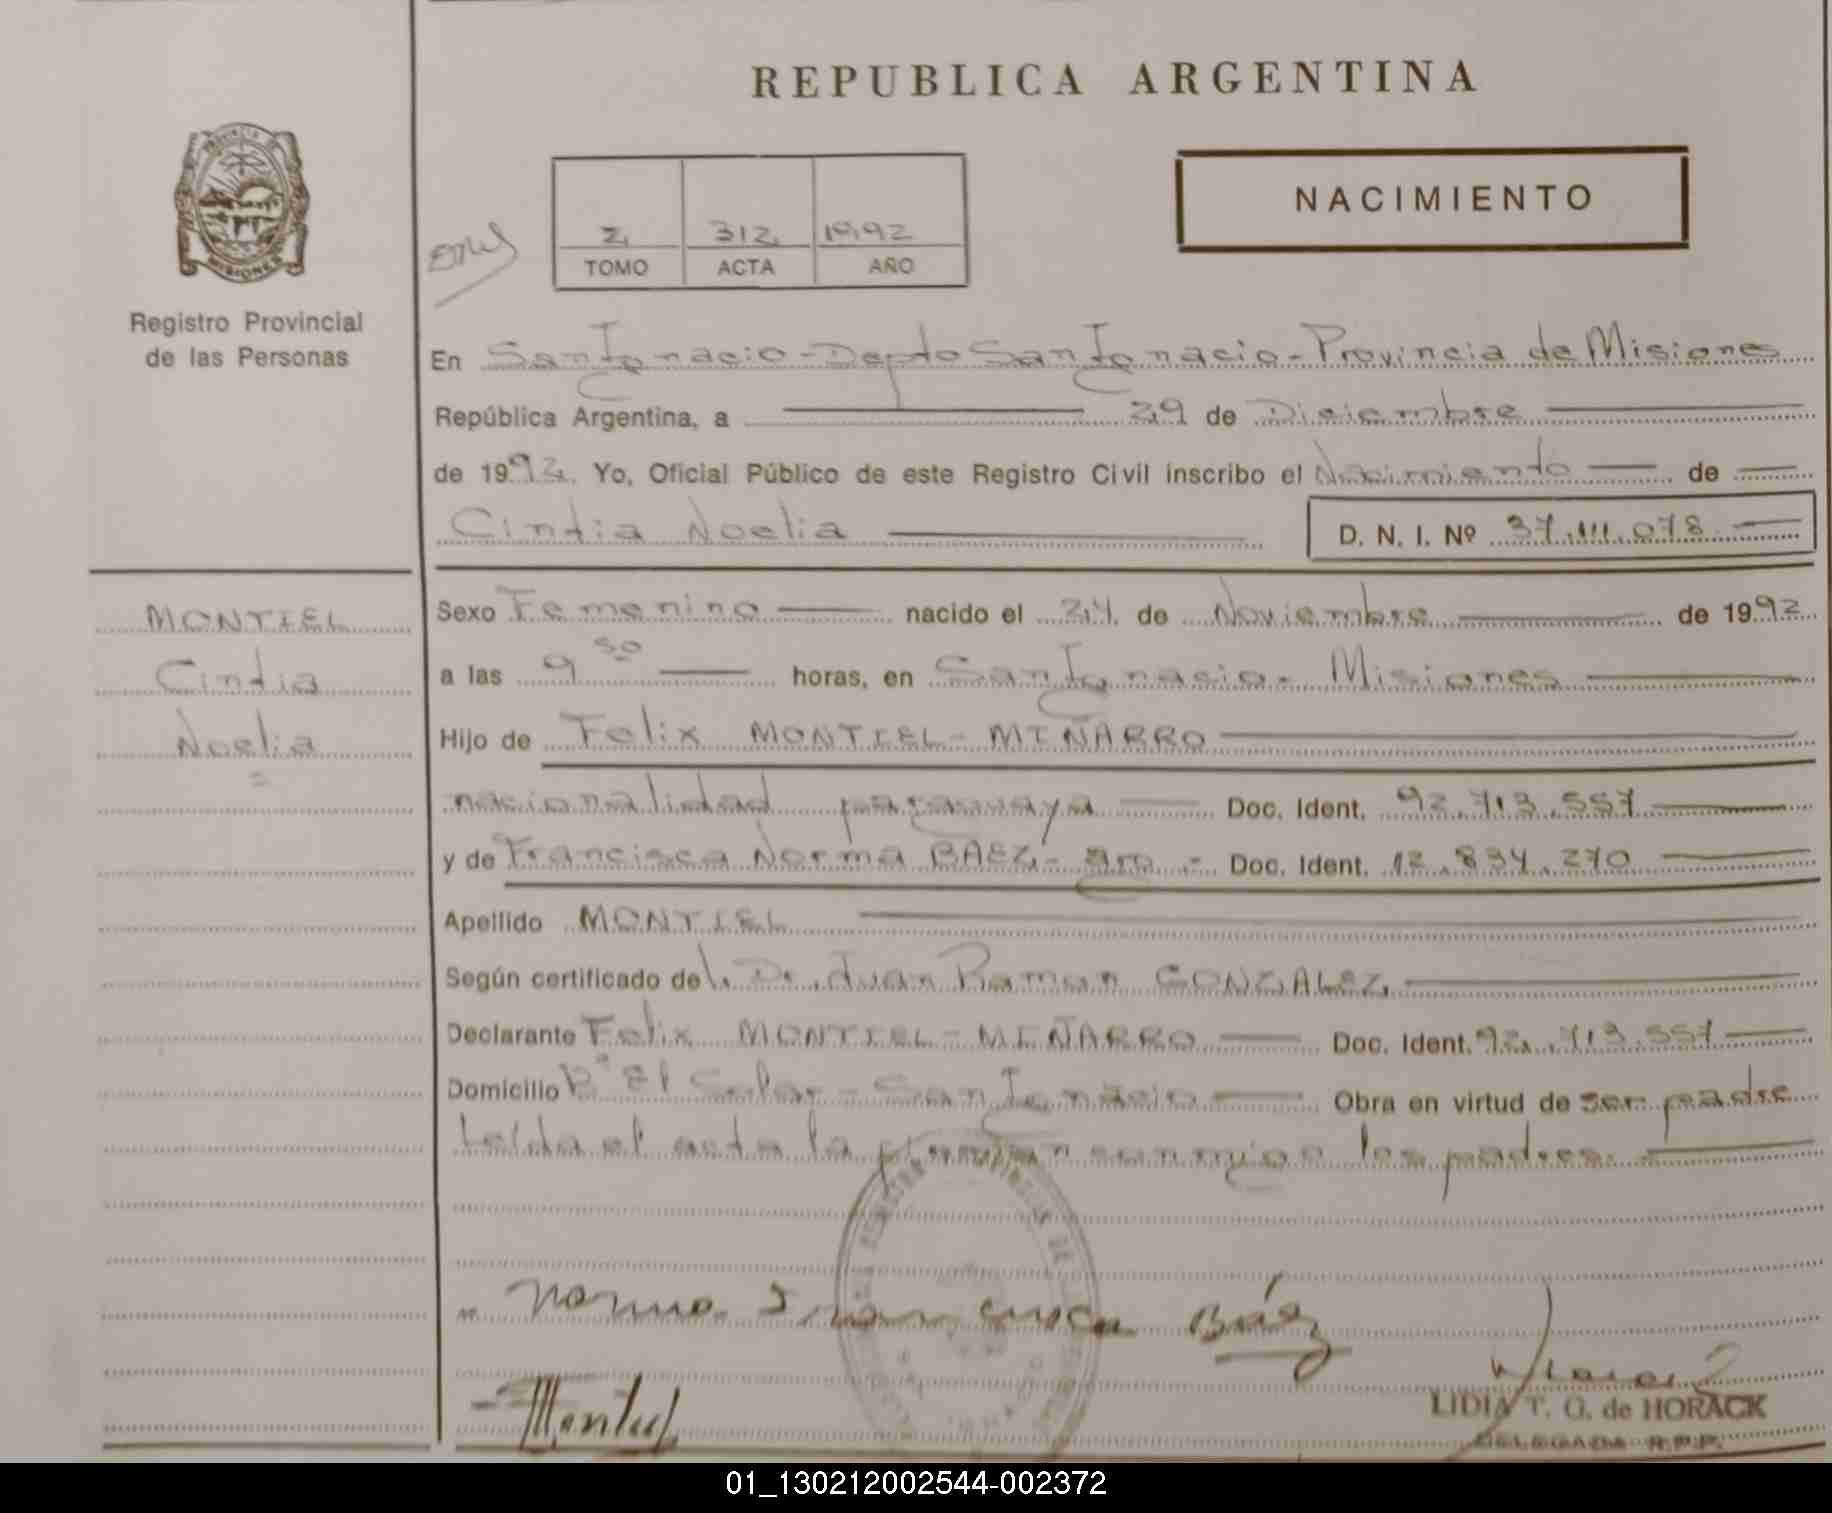 REPUBLICA ARGENTINA
NACIMIENTO
2 312 1992
TOMO ACTA AÑO
PROVINCIA DE
MISIONES
Registro Provincial
de las Personas
En San Ignacio - Depto San Ignacio - Provincia de Misiones
República Argentina, a 29 de Diciembre
de 1992 Yo, Oficial Público de este Registro Civil inscribo el Nacimiento de
Cintia Noelia D. N. I. Nº 37.111.078
MONTIEL
Cintia
Noelia
Sexo Femenino nacido el 24 de Noviembre de 1992
a las 9 30 horas, en San Ignacio - Misiones
Hijo de Felix MONTIEL - MIÑARRO
nacionalidad paraguaya Doc. Ident. 92.713.557
y de Francisca Norma BAEZ - arg - Doc. Ident. 12.834.270
Apellido MONTIEL
Según certificado del Dr. Juan Ramon GONZALEZ
Declarante Felix MONTIEL - MIÑARRO Doc. Ident. 92.713.557
Domicilio Bº El Solar - San Ignacio Obra en virtud de ser padre
Leída el acta la firman conmigo los padres.
Norma Francisca Báez
Montiel
LIDIA T. G. de HORACK
DELEGADA R.P.P.
01_130212002544-002372